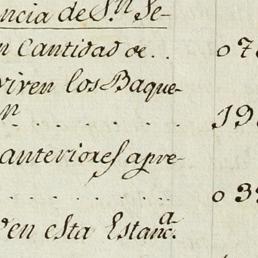 encia de S.n Se-
n Cantidad de . . 07
viven los Baque-
n . . . . . . 19
anteriores apre-
. . . . . . . 03
en esta Estanc.a